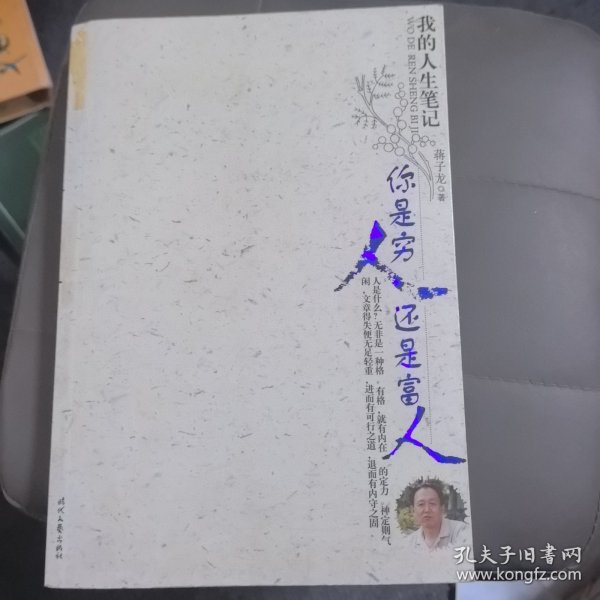 我的人生笔记
WO DE REN SHENG BI JI
蒋子龙◎著
你是穷人
还是富人
人是什么?无非是一种格,有格,就有内在的定力,神定则气
闲,文章得失便无足轻重,进而有可行之道,退而有内守之固
时代文艺出版社
孔夫子旧书网
www.kongfz.com